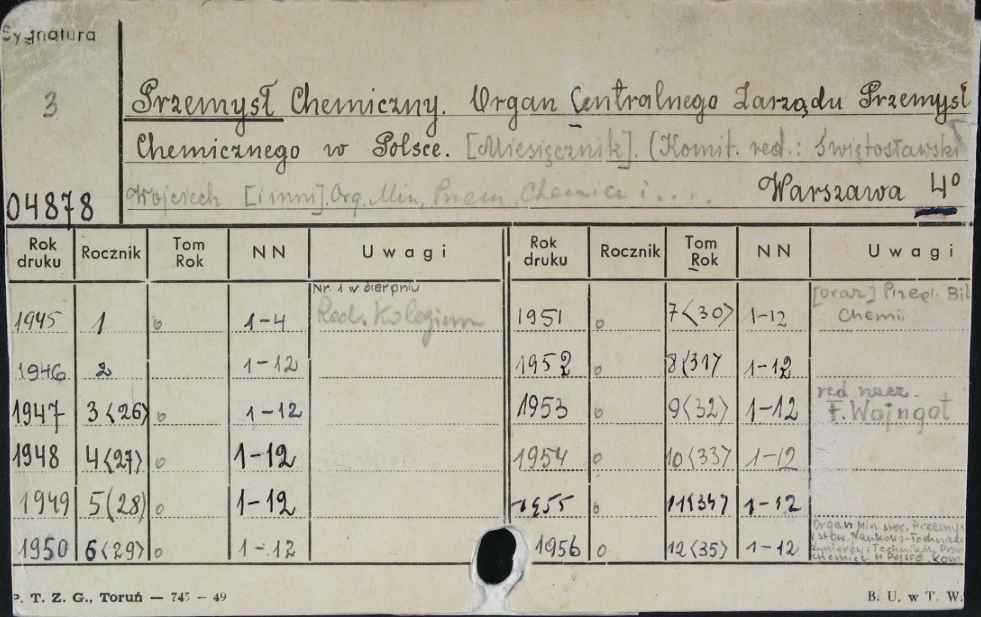 Sygnatura
3
04878
Przemysł Chemiczny. Organ Centralnego Zarządu Przemysł
Chemicznego w Polsce. [Miesięcznik]. (Komit. red.: Świętosławski
Wojciech [i inni]. Org. Min. Przem. Chemicz i ....  Warszawa 4°
Rok druku Rocznik Tom Rok NN Uwagi Rok druku Rocznik Tom Rok NN Uwagi
1945 1 o 1-4 Nr. 1 w sierpniu Red. Kolegium 1951 o 7<30> 1-12 [oraz] Przegl. Bibl Chemii
1946 2 1-12 1952 o 8<31> 1-12
1947 3<26> o 1-12 1953 o 9<32> 1-12 red. nacz. F. Wajngot
1948 4<27> o 1-12 1954 o 10<33> 1-12
1949 5(28) o 1-12 1955 o 11<34> 1-12
1950 6<29> o 1-12 1956 o 12<35> 1-12 Organ Min. Przemy i Stow. Naukowo-Techn. Inżynierów i Techników Przem Chemicz. w Polsce. Kom
P. T. Z. G., Toruń — 745 — 49
B. U. w T. W.